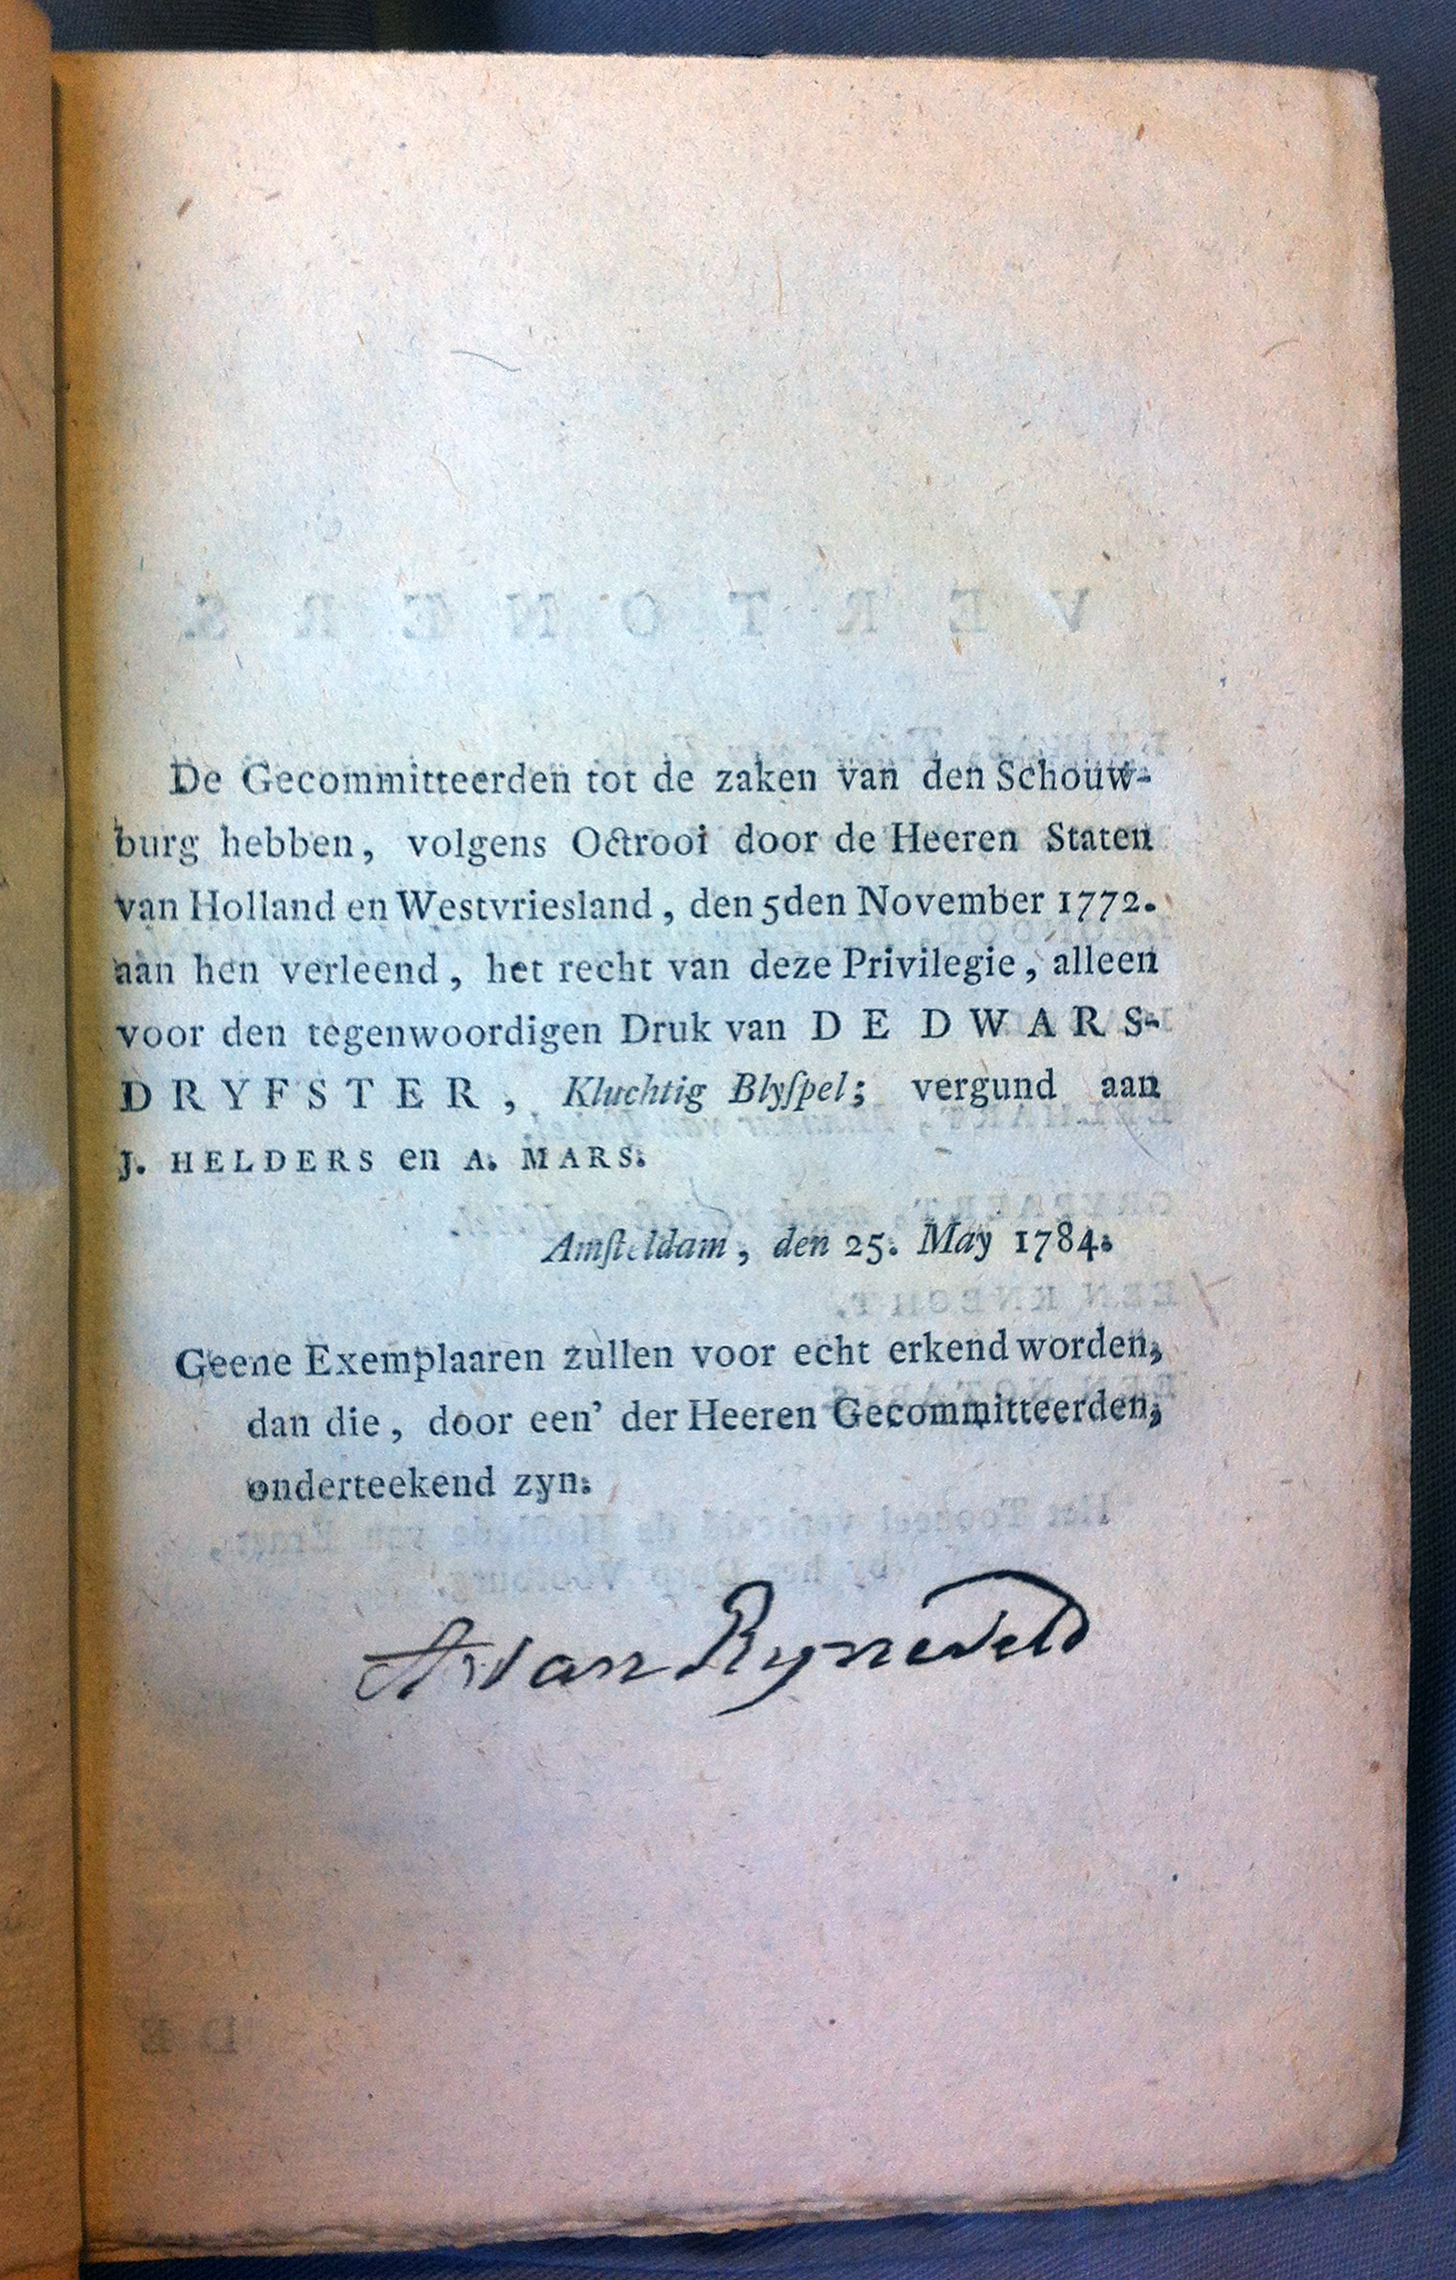 De Gecommitteerden tot de zaken van den Schouw-
burg hebben, volgens Octrooi door de Heeren Staten
van Holland en Westvriesland, den 5den November 1772.
aan hen verleend, het recht van deze Privilegie, alleen
voor den tegenwoordigen Druk van DE DWARS-
DRYFSTER, Kluchtig Blyſpel; vergund aan
J. HELDERS en A. MARS.
Amſteldam, den 25. May 1784.
Geene Exemplaaren zullen voor echt erkend worden,
dan die, door een' der Heeren Gecommitteerden,
onderteekend zyn.
van Ryneveld